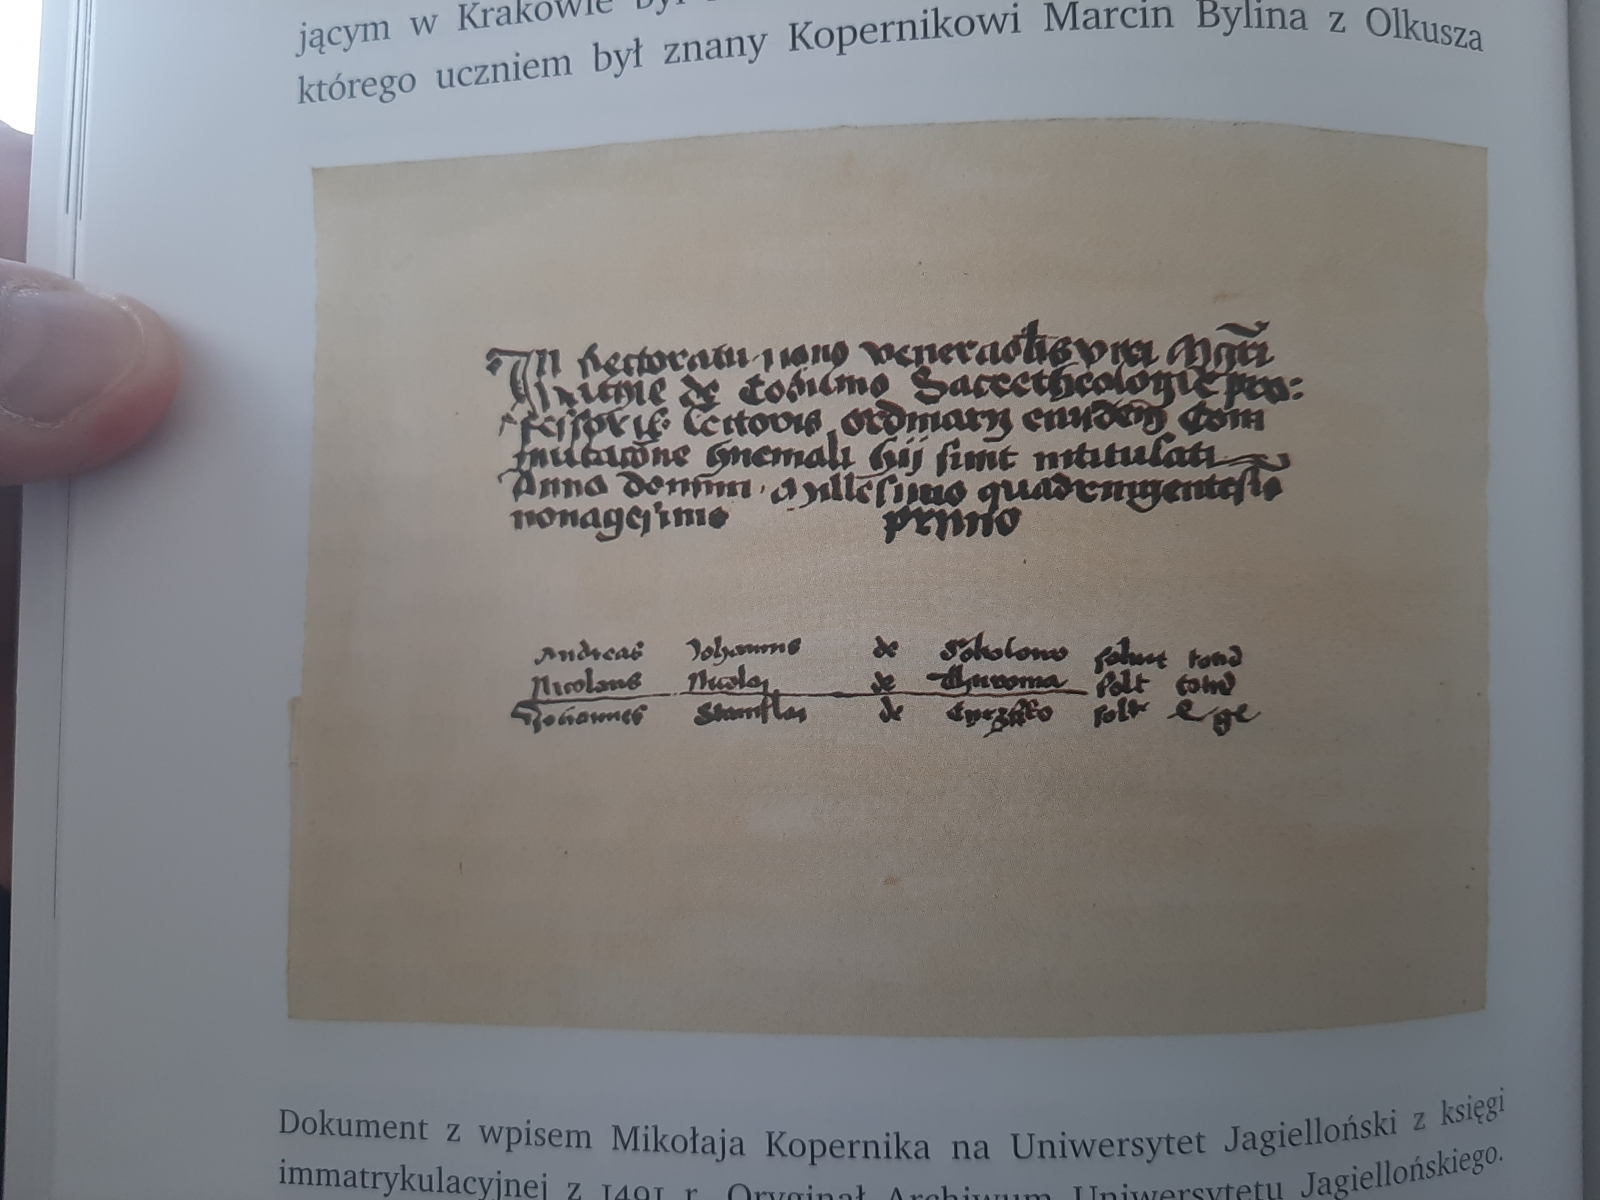 jącym w Krakowie był
którego uczniem był znany Kopernikowi Marcin Bylina z Olkusza
In Rectoratu nono venerabilis viri Mgri
de Cobilino Sacre theologie pro:
fessoris Lectoris ordinarii eiusdem Com
mutacione hyemali hij sunt intitulati
Anno domini Millesimo quadringentesio
nonagesimo primo
Andreas Johannis de Sokolowo solvit totum
Nicolaus Nicolai de Thuronia solt totum
Johannes Stanislai de solt
Dokument z wpisem Mikołaja Kopernika na Uniwersytet Jagielloński z księgi
immatrykulacyjnej z 1491 r. Oryginał Archiwum Uniwersytetu Jagiellońskiego.